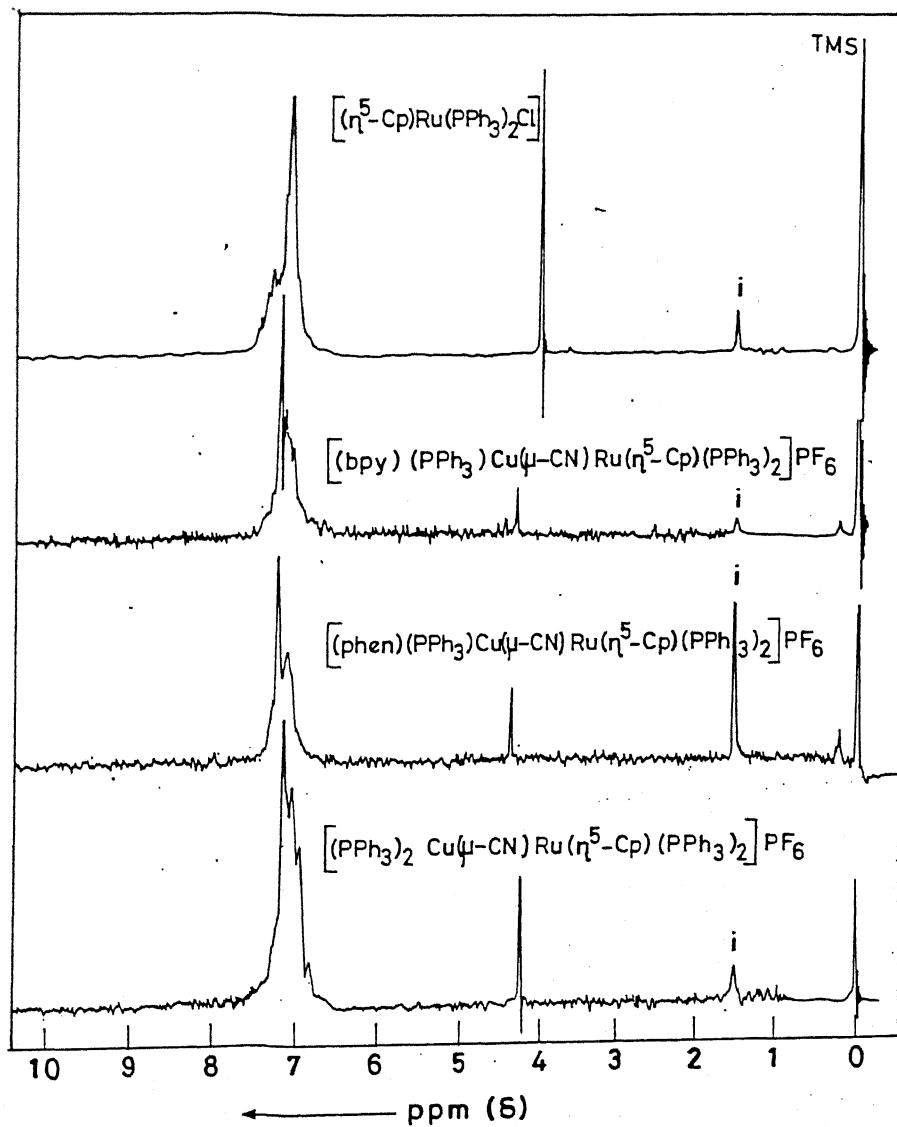 TMS
[(η⁵-Cp)Ru(PPh₃)₂Cl]
i
[(bpy) (PPh₃) Cu(μ-CN) Ru(η⁵-Cp)(PPh₃)₂]PF₆
i
i
[(phen)(PPh₃)Cu(μ-CN) Ru(η⁵-Cp)(PPh₃)₂]PF₆
[(PPh₃)₂ Cu(μ-CN) Ru(η⁵-Cp) (PPh₃)₂]PF₆
i
10 9 8 7 6 5 4 3 2 1 0
ppm (δ)